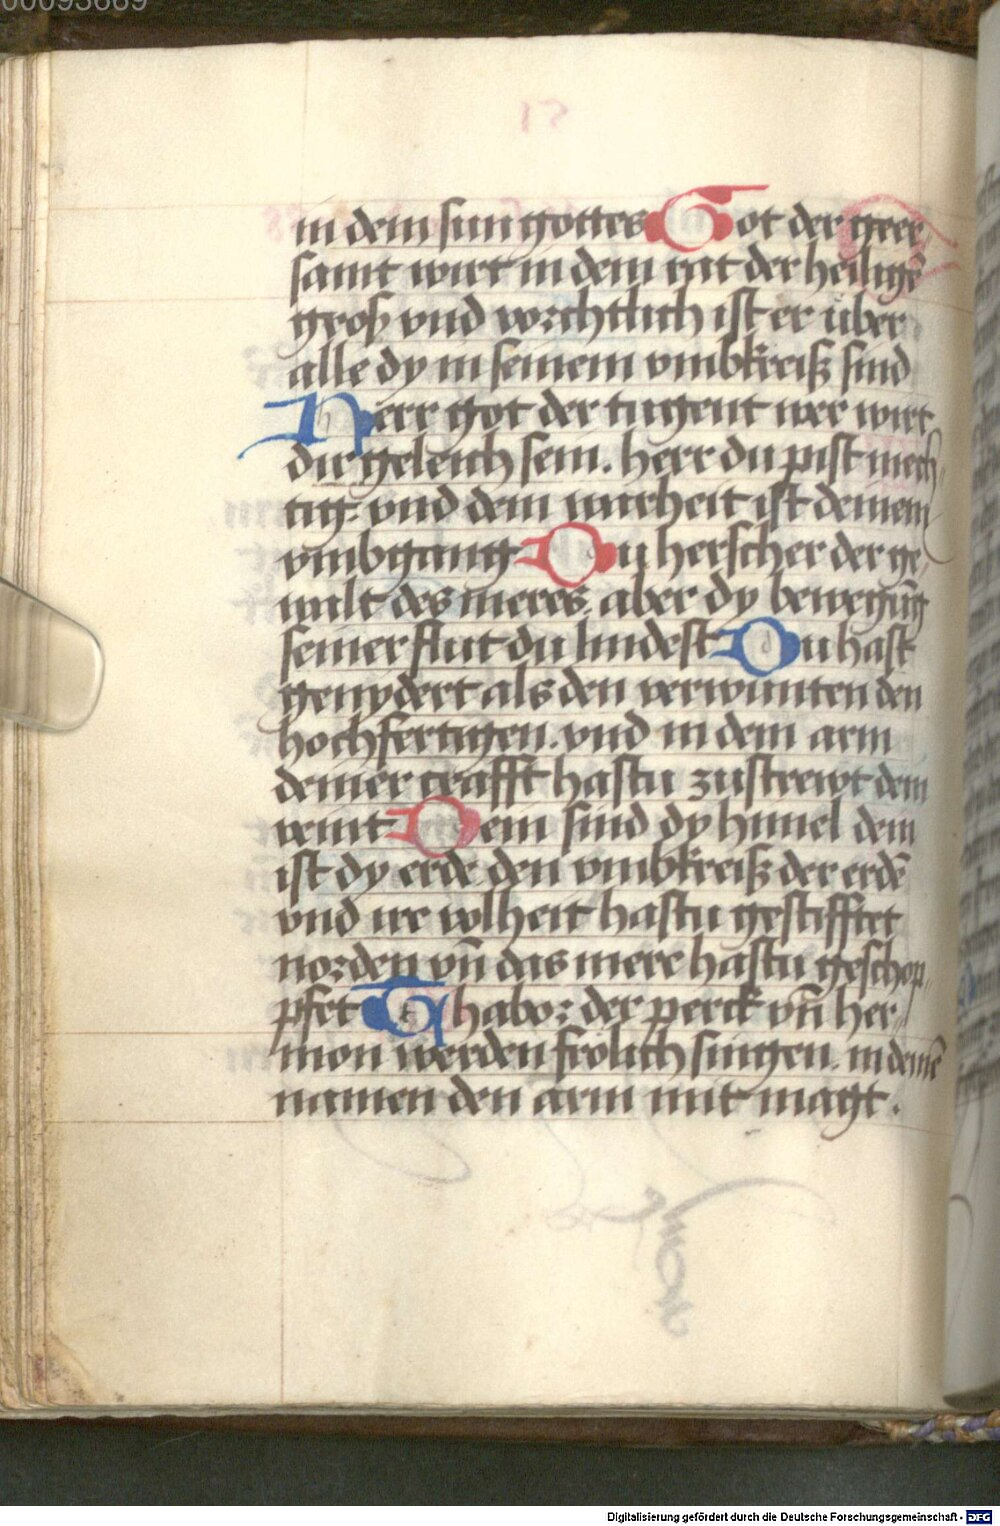 00093669
in dem sun gottes Got der geer
samt wirt in dem rat der heiligē
groß vnd vorchtlich ist er über
alle dy in seinem vmbkreiß sind
Herr got der tugent wer wirt
dir geleich sein. herr du pist mech
tig. vnd dein warheit ist deinem
vmbgang Du herscher der ge
walt des meres. aber dy bewegūg
seiner flut du lindest Du hast
genydert als den verwunten den
hochfertigen. vnd in dem arm
deiner crafft hastu zustrewt dein
veint Dein sind dy himel dein
ist dy erde den vmbkreiß der erdē
vnd ire volheit hastu gestifftet
norden vn̄ das mere hastu geschop
pfet Thabor der perck vn̄ her
mon werden frölich singen. in deinē
namen den arm mit magt.
Digitalisierung gefördert durch die Deutsche Forschungsgemeinschaft - DFG